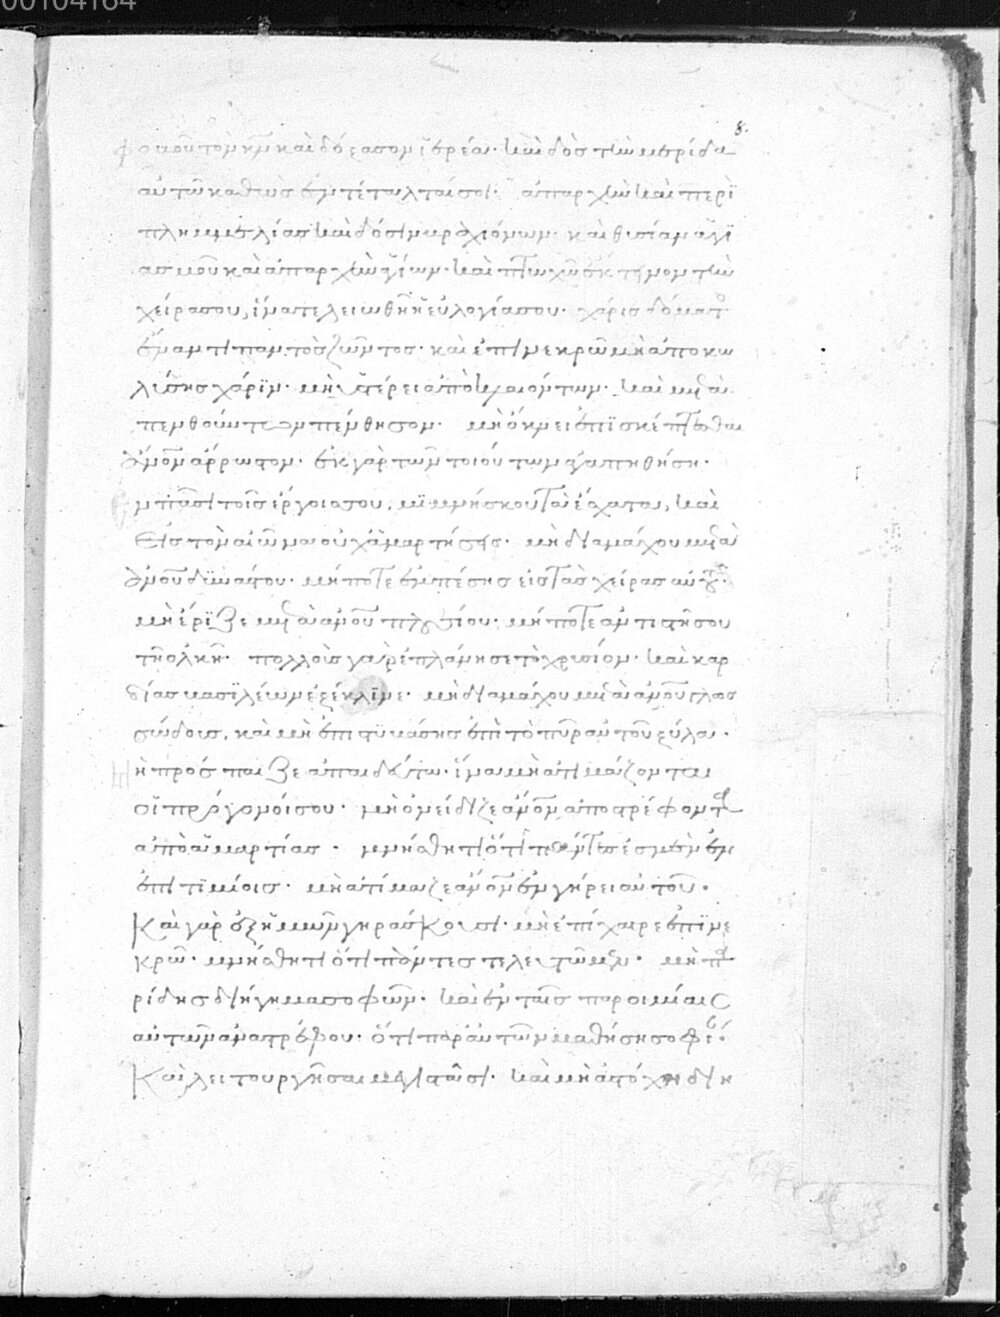 00104164
8.
φοβοῦ τὸν κν καὶ δόξασον ἱερέα· καὶ δὸς τὴν μερίδα
αὐτῶ καθὼς ἐντέταλταί σοι· ἀπαρχὴν καὶ περὶ
πλημμελίας καὶ δόσιν βραχιόνων· καὶ θυσίαν ἁγι
ασμοῦ καὶ ἀπαρχὴν ἁγίων· καὶ πτωχῶ ἔκτεινον τὴν
χεῖρα σου, ἵνα τελειωθῆ ἡ εὐλογία σου· χάρις δόματ
ἔναντι παντὸς ζῶντος· καὶ ἐπὶ νεκρῶ μὴ ἀποκω
λύσης χάριν· μὴ ὑστέρει ἀπὸ κλαιόντων· καὶ μετὰ
πενθούντων πένθησον· μὴ ὄκνει ἐπισκέπτεσθαι
ἄρρωστον· ἐκ γὰρ τῶν τοιούτων ἀγαπηθήση·
ν πᾶσι τοῖς ἔργοις σου, μιμνήσκου τὰ ἔσχατα, καὶ
εἰς τὸν αἰῶνα οὐχ ἁμαρτήσεις· μὴ διαμάχου μετὰ
δυνάστου· μήποτε ἐμπέσης εἰς τὰς χεῖρας αὐτοῦ·
μὴ ἔριζε μετὰ ἀνοῦ πλουσίου· μήποτε ἀντιστήσου
τῆ ὁλκῆ· πολλοὺς γὰρ ἐπλάνησε τὸ χρυσίον· καὶ καρ
δίας βασιλέων ἐξέκλινε· μὴ διαμάχου μετὰ ἀνοῦ γλωσ
σώδους, καὶ μὴ ἐπιστοιβάσης ἐπὶ τὸ πῦρ αὐτοῦ ξύλα·
ἡ πρόσπαιζε ἀπαιδεύτω· ἵνα μὴ ἀτιμάζονται
οἱ πρόγονοί σου· μὴ ὀνείδιζε ἄνον ἀποστρέφοντ
ἀπὸ ἁμαρτίας· μνήσθητι ὅτι πάντες ἐσμὲν ἐν
ἐπιτιμίοις· μὴ ἀτίμαζε ἄνον ἐν γήρει αὐτοῦ·
Καὶ γὰρ ἐξ ἡμῶν γηράσκουσι· μὴ ἐπίχαιρε ἐπὶ νε
κρῶ· μνήσθητι ὅτι πάντες τελευτῶμεν· μὴ πα
ρίδης διήγημα σοφῶν· καὶ ἐν ταῖς παροιμίαις
αὐτῶν ἀναστρέφου· ὅτι παρ' αὐτῶν μαθήση
Καὶ λειτουργῆσαι μεγιστᾶσι· καὶ μὴ ἀστόχει δι η